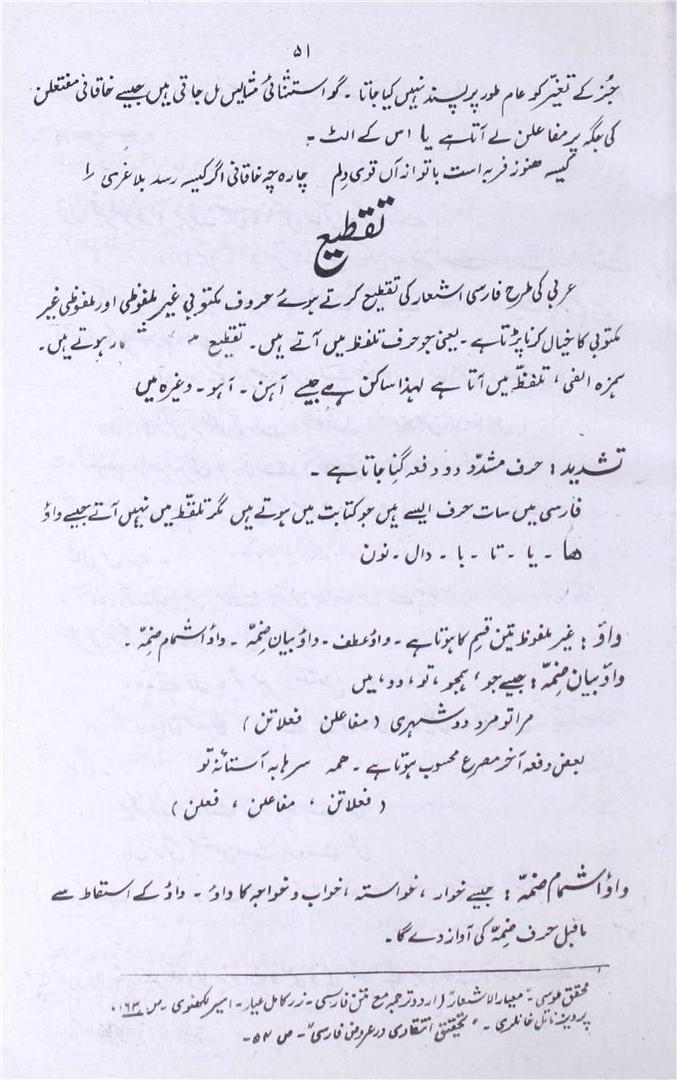 ۵۱
جُز کے تغیّر کو عام طور پر پسند نہیں کیا جاتا ۔ گو استثنائی مثالیں مل جاتی ہیں جیسے خاقانی مفتعلن
کی جگہ پر مفاعلن لے آتا ہے یا اس کے الٹ ۔
کیسہ هنوز فربہ است با تو ازآں قوی دِلم چارہ چہ خاقانی اگر کیسہ رسد بلاغری را
تقطیع
عربی کی طرح فارسی اشعار کی تقطیع کرتے ہوئے حروف مکتوبی غیر ملفوظی اور ملفوظی غیر
مکتوبی کا خیال کرنا پڑتا ہے ۔ یعنی جو حرف تلفظ میں آتے ہیں ۔ تقطیع ہوتے ہیں ۔
ہمزہ الفی ، تلفظ میں آتا ہے لہذا ساکن ہے جیسے آہن ۔ آہو ۔ وغیرہ میں
تشدید : حرف مشدّد دو دفعہ گِنا جاتا ہے ۔
فارسی میں سات حرف ایسے ہیں جو کتابت میں ہوتے ہیں مگر تلفّظ میں نہیں آتے جیسے واؤ
ها ۔ یا ۔ تا ۔ با ۔ دال ۔ نون
واؤ : غیر ملفوظ تین قسم کا ہوتا ہے ۔ واؤ عطف ۔ واؤ بیان ضمّہ ۔ واؤ اشمام ضمّہ ۔
واؤ بیان ضمّہ : جیسے جو ، ہمچو ، تو ، دو ، میں
مرا تو مرد دو شہری ( مفاعلن فعلاتن )
بعض دفعہ آخر مصرع محسوب ہوتا ہے ۔ ھمہ سر ها بہ آستانہ تو
( فعلاتن ، مفاعلن ، فعلن )
واؤ اشمام ضمّہ : جیسے خوار ، خواستہ ، خواب و خواجہ کا واؤ ۔ واؤ کے اسقاط سے
ماقبل حرف ضِمّہ کی آواز دے گا ۔
۱
محقق طوسی ۔ " معیار الاشعار" ( اردو ترجمہ مع متن فارسی ۔ زر کامل عیار ۔ امیر لکھنوی ۔ ص ۱۶۳ ،
پرویز ناتل خانلری ۔ " تحقیقِ انتقادی در عروض فارسی " ۔ ص ۵۲ ۔